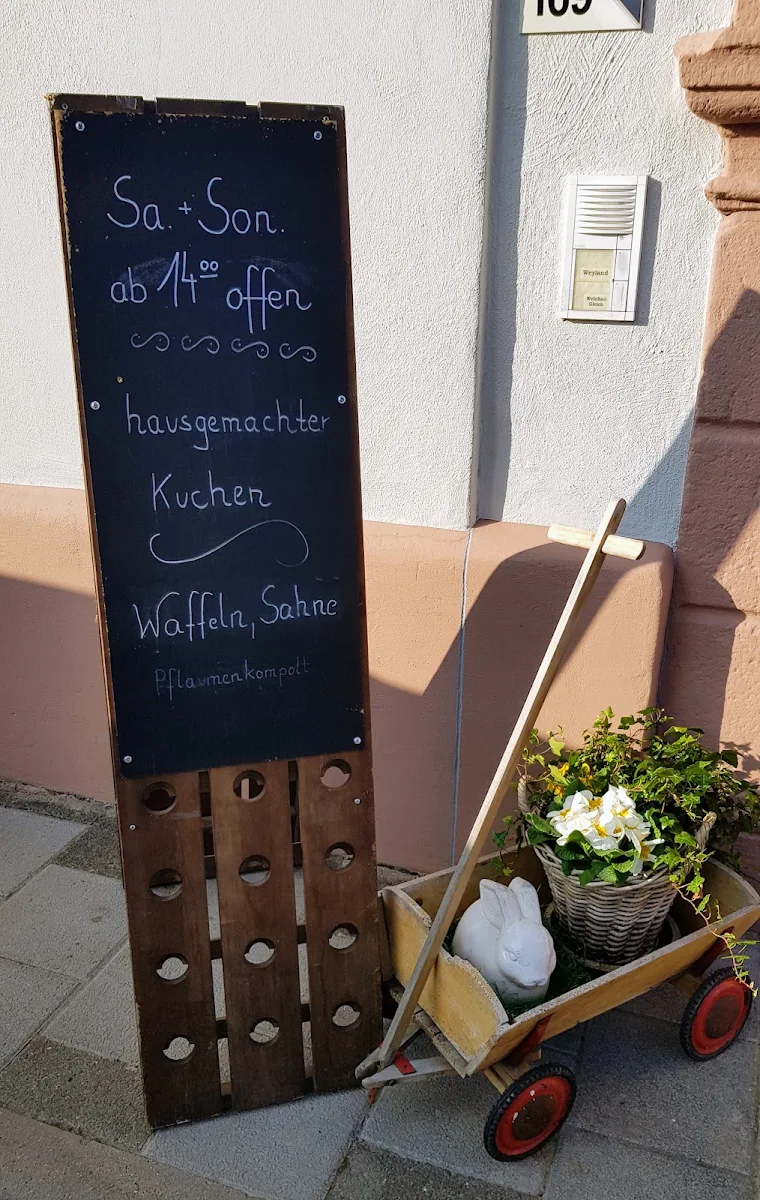 169
Sa. + Son.
ab 14°° offen
hausgemachter
Kuchen
Waffeln, Sahne
Pflaumenkompott
Weyland
Weinbau
Gleich